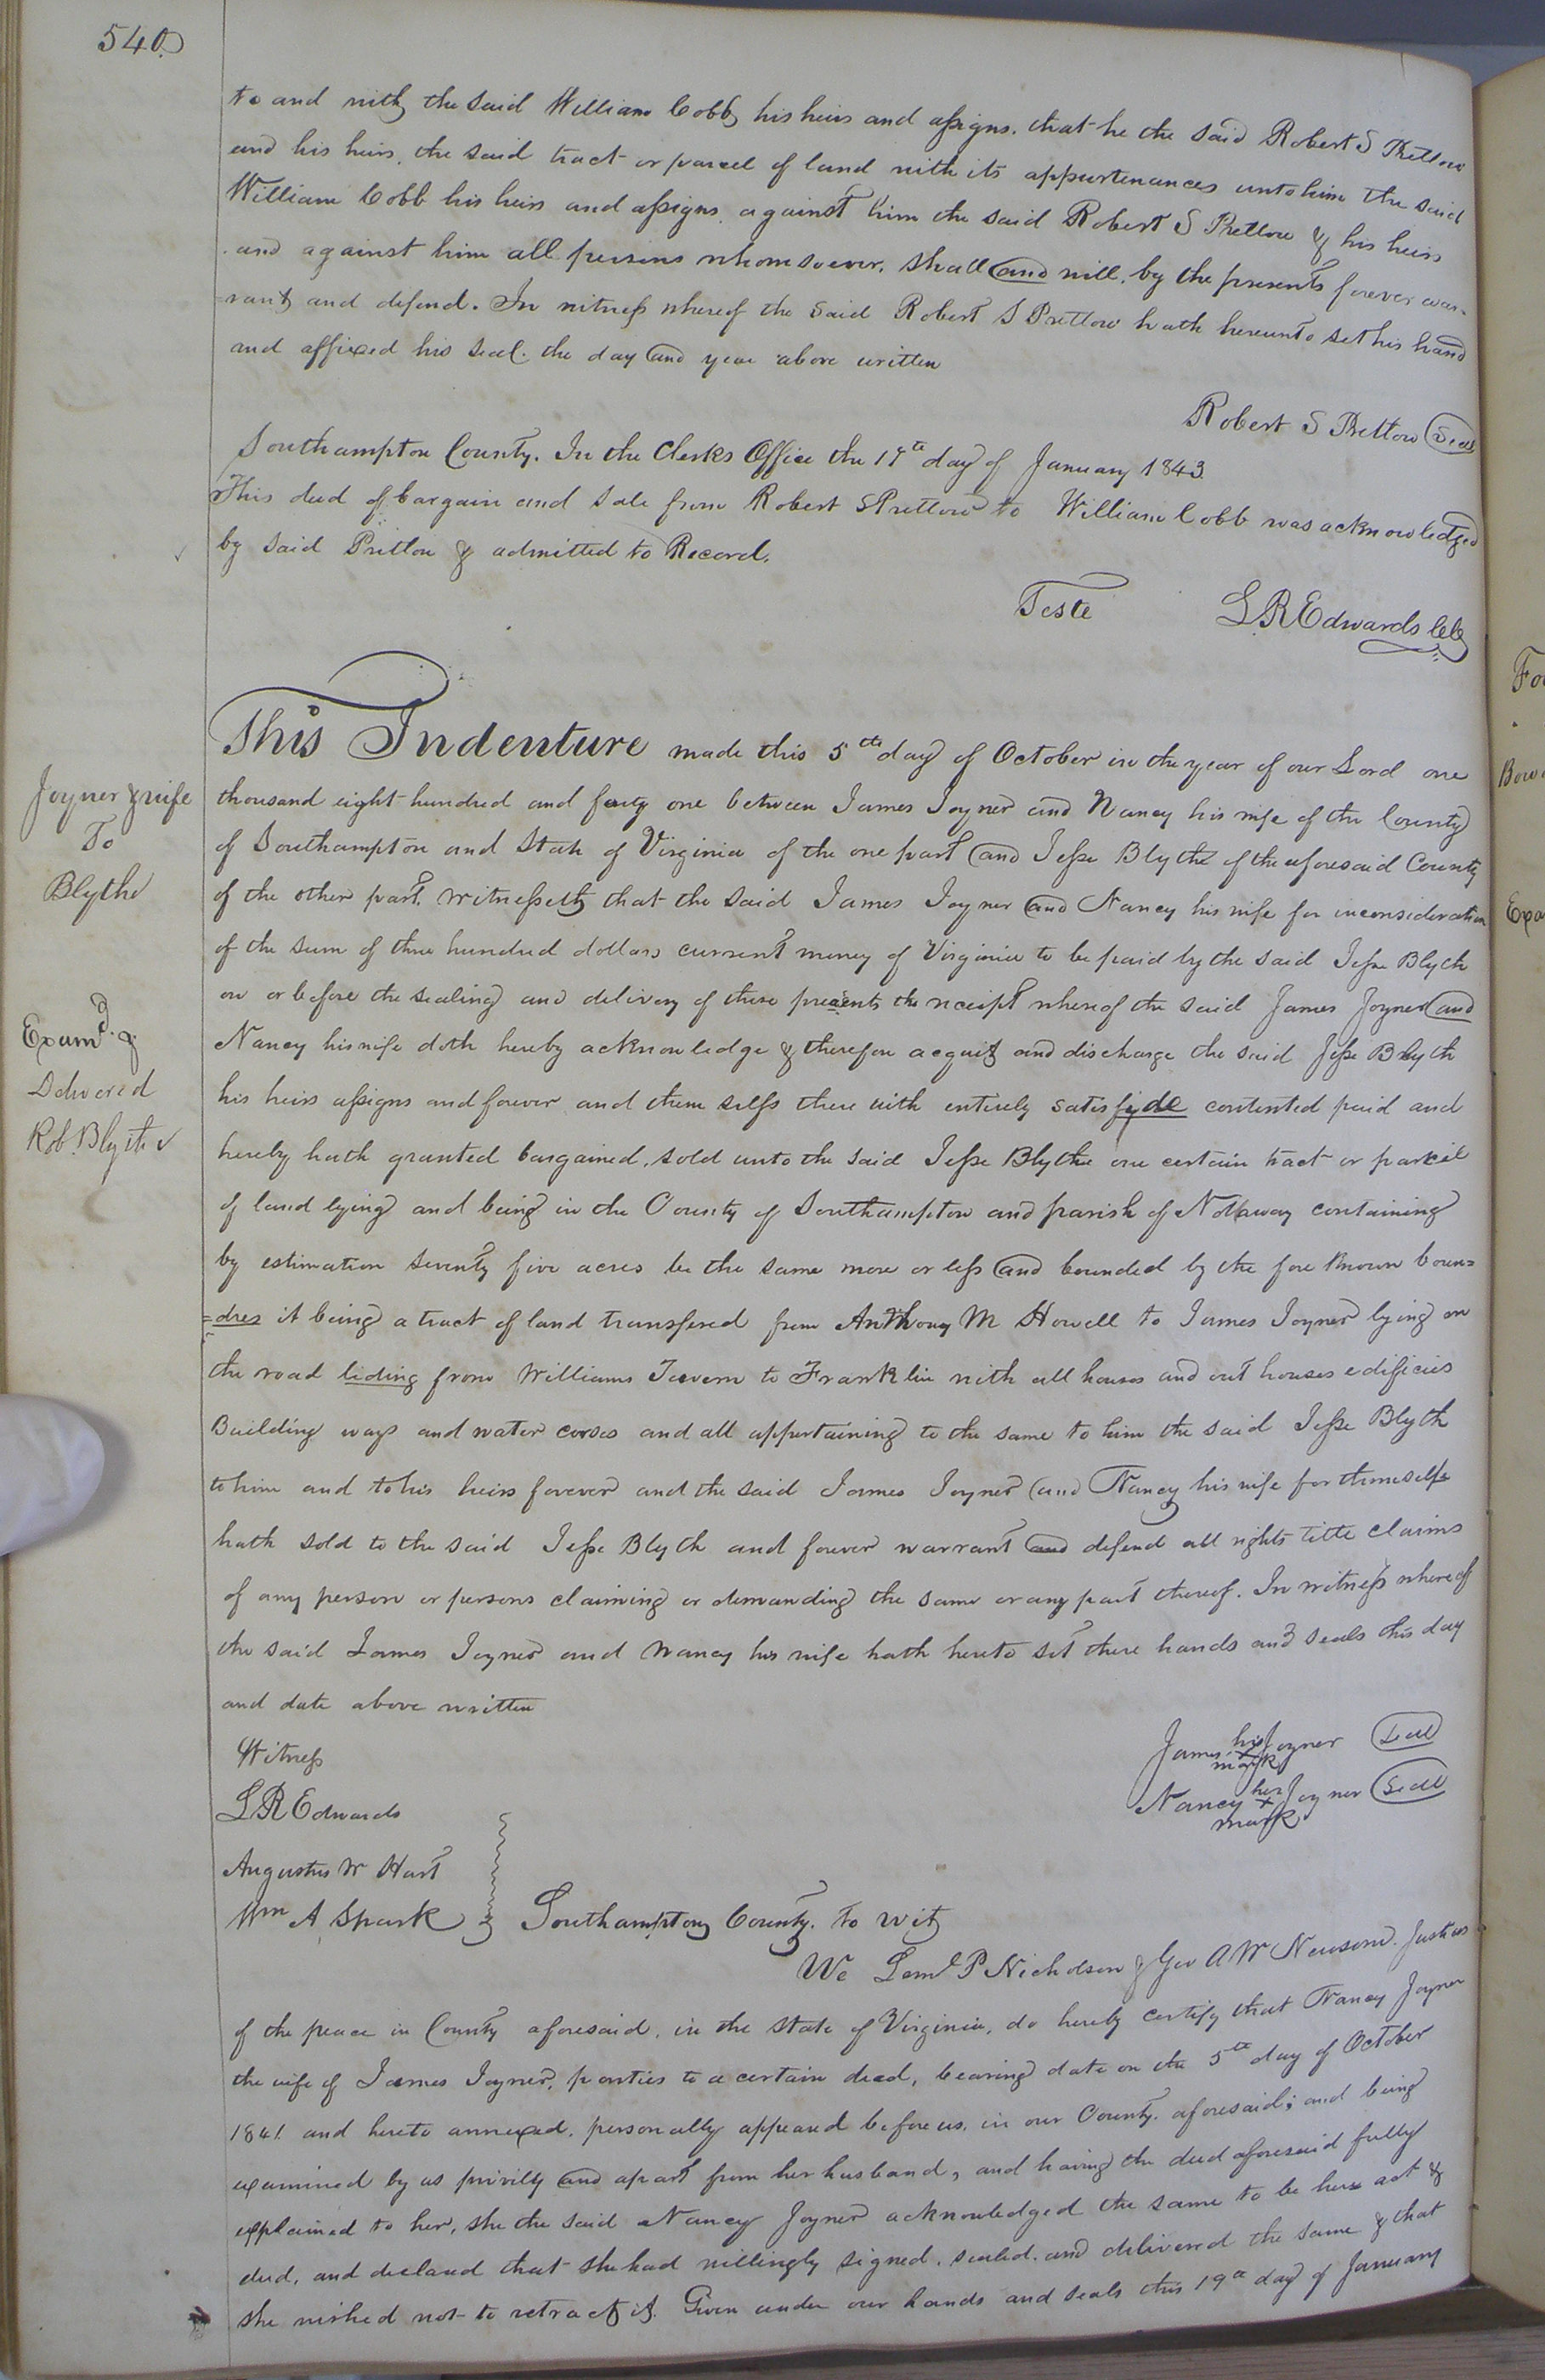 540
to and with the said William Cobb his heirs and assigns. that he the said Robert S Pretlow
and his heirs, the said tract or parcel of land with its appurtenances unto him the said
William Cobb his heirs and assigns against him the said Robert S Pretlow & his heirs
and against him all persons whomsoever, shall and will, by the presents forever war-
-rant and defend. In witness whereof the said Robert S Pretlow hath hereunto set his hand
and affixed his seal. the day and year above written
Robert S Pretlow Seal
Southampton County. In the Clerks Office the day of January 1843
This deed of bargain and sale from Robert S Pretlow to William Cobb was acknowledged
by said Pretlow & admitted to Record.
Teste L R Edwards Clk
Joyner & wife
To
Blythe
Examd. &
Delivered
Rob. Blythe
This Indenture made this 5th day of October in the year of our Lord one
thousand eight hundred and forty one between James Joyner and Nancy his wife of the County
of Southampton and State of Virginia of the one part and Jesse Blythe of the aforesaid County
of the other part. Witnesseth that the said James Joyner and Nancy his wife for inconsideration
of the sum of three hundred dollars current money of Virginia to be paid by the said Jesse Blyth
on or before the sealing and delivery of these presents the receipt whereof the said James Joyner and
Nancy his wife doth hereby acknowledge & therefore acquit and discharge the said Jesse Blyth
his heirs assigns and forever and them selfs there with entirely satisfyde contented paid and
hereby hath granted bargained, sold unto the said Jesse Blythe one certain tract or parcel
of land lying and being in the County of Southampton and parish of Nottoway containing
by estimation seventy five acres be the same more or less and bounded by the fore known boun=
=dres it being a tract of land transfered from Anthony M Howell to James Joyner lying on
the road liding from Williams Tavern to Franklin with all houses and out houses edificies
Building ways and water corses and all appertaining to the same to him the said Jesse Blyth
to him and to his heirs forever and the said James Joyner and Nancy his wife for themselfs
hath sold to the said Jesse Blyth and forever warrant and defend all rights title claims
of any person or persons claiming or demanding the same or any part thereof. In witness whereof
the said James Joyner and Nancy his wife hath hereto set there hands and seals this day
and date above written
Witness
James his x mark Joyner Seal
L R Edwards
Nancy her x mark Joyner Seal
Augustus W Hart
Wm A Spark
Southampton County. to wit
We Leml P Nicholson & Geo A W Newsom. Justices
of the peace in County aforesaid, in the state of Virginia, do hereby certify that Nancy Joyner
the wife of James Joyner, parties to a certain deed, bearing date on the 5th day of October
1841. and hereto annexed, personally appeard before us, in our County aforesaid; and being
examined by us privily and apart from her husband, and having the deed aforesaid fully
explained to her, she the said Nancy Joyner acknowledged the same to be her act &
deed, and declared that she had willingly signed, sealed, and delivered the same & that
she wished not to retract it. Given under our hands and seals this 19th day of January